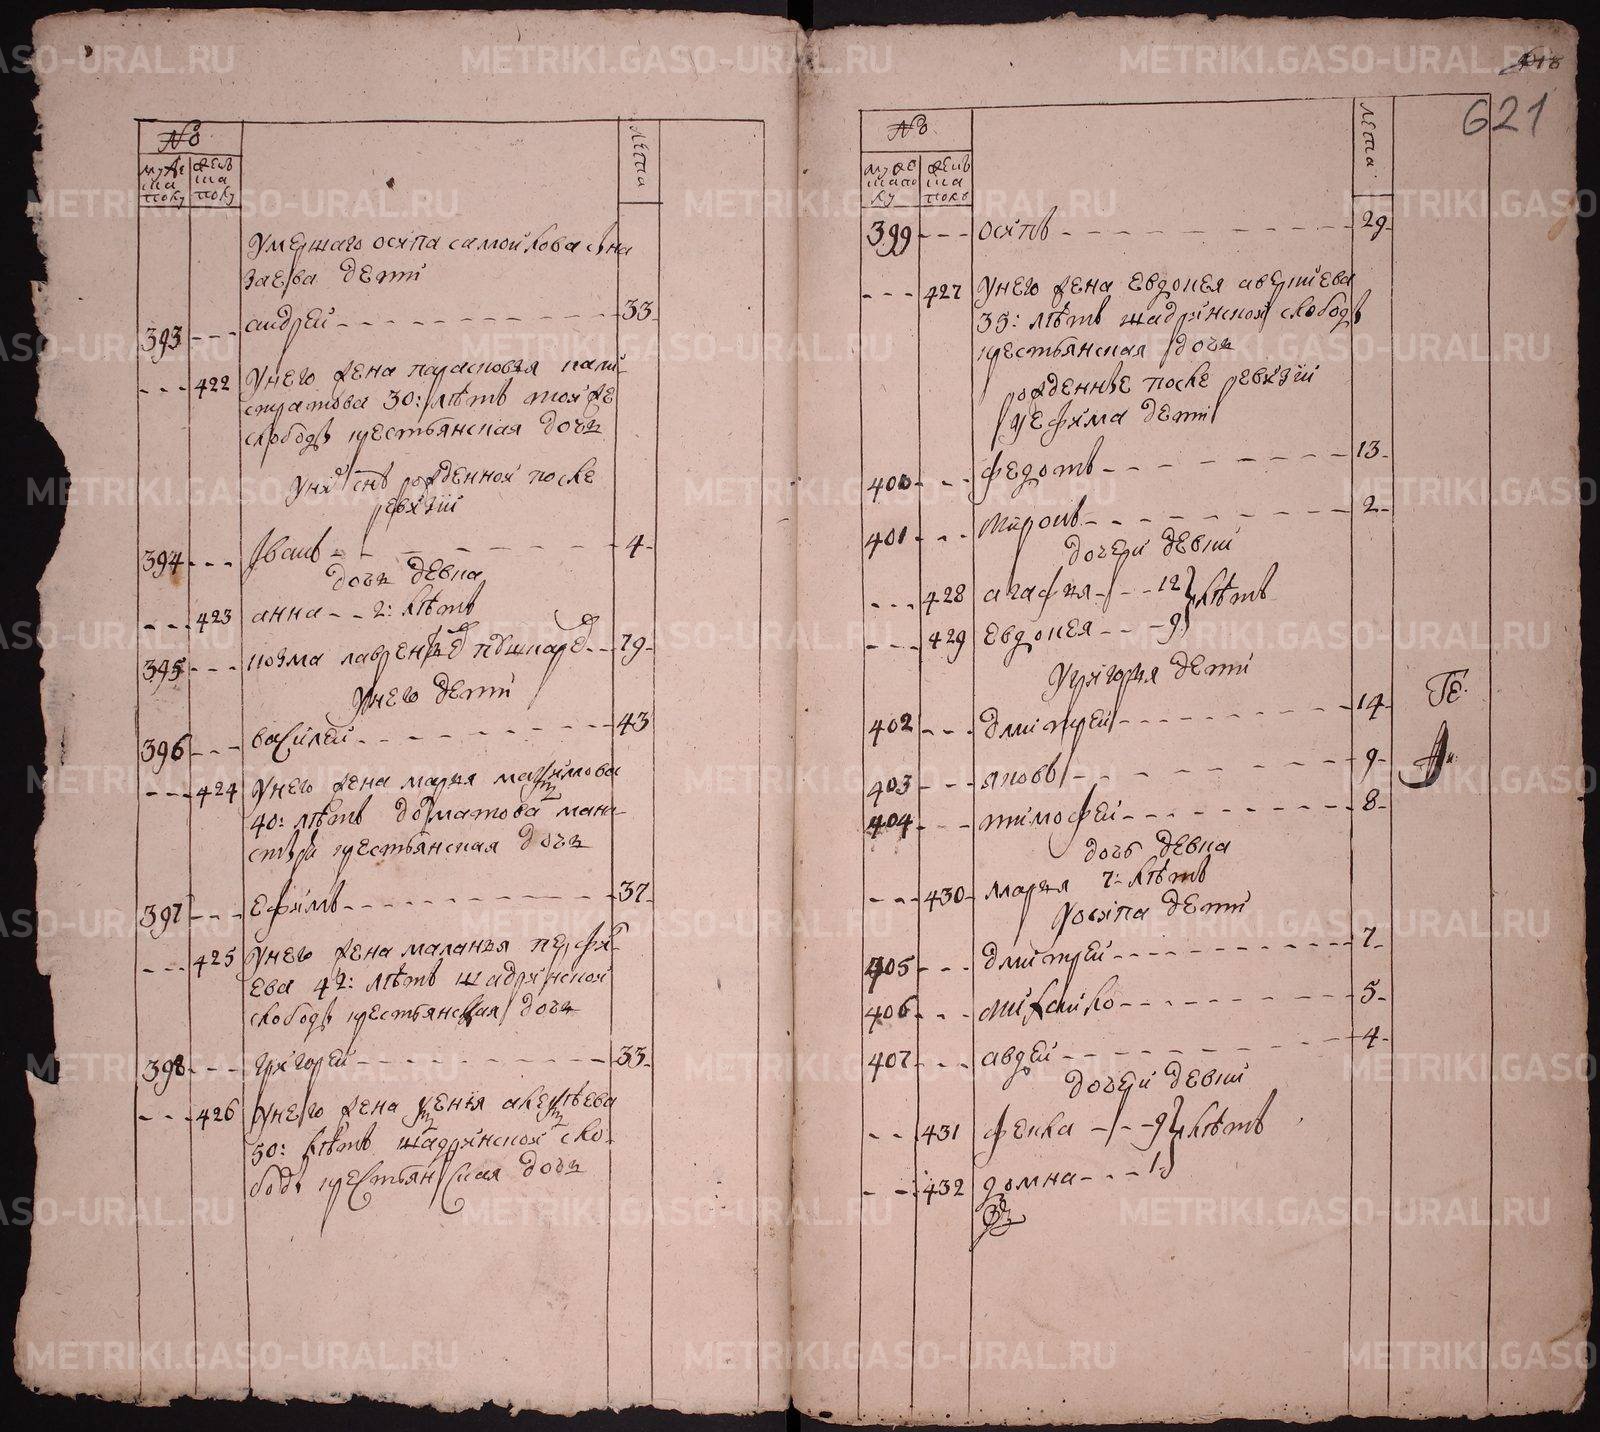 №
муже
ска
полу
женс
ка
полу
лета
умершаго осипа самойлова сна
заева дети
393 --- андрей --- 33
--- 422 унего жена парасковья пали
стратова 30: летъ тояже
слободы крестьянская дочь
уних снъ рожденной после
ревизии
394 --- иванъ --- 4
дочь девка
--- 423 анна -- 2: летъ
395 --- козма лаврентьев --- 79
унего дети
396 --- василей --- 43
--- 424 унего жена марья максимова
40: летъ долматова мана
стыря крестьянская дочь
397 --- ефимъ --- 37
--- 425 унего жена маланья перфи
ева 42: летъ шадринской
слободы крестьянская дочь
398 --- григорей --- 33
--- 426 унего жена ксения алексеева
30: летъ шадринской сло
боды крестьянская дочь
621
№
муже
скапо
лу
женс
ка
полу
лета
399 --- осипъ --- 29
--- 427 унего жена евдокея
35: летъ шадринской слободы
крестьянская дочь
рожденные после ревизии
уефима дети
400 --- федотъ --- 13
401 --- миронъ --- 2
дочери девки
--- 428 агафья --- 12 летъ
--- 429 евдокея --- 9
угригорья дети
402 --- дмитрей --- 14
403 --- яковъ --- 9
404 --- тимофей --- 8
дочь девка
--- 430 марья 7: летъ
уосипа дети
405 --- дмитрей --- 7
406 --- михайло --- 5
407 --- авдей --- 4
дочери девки
--- 431 фекла --- 9 летъ
--- 432 домна --- 1
METRIKI.GASO-URAL.RU